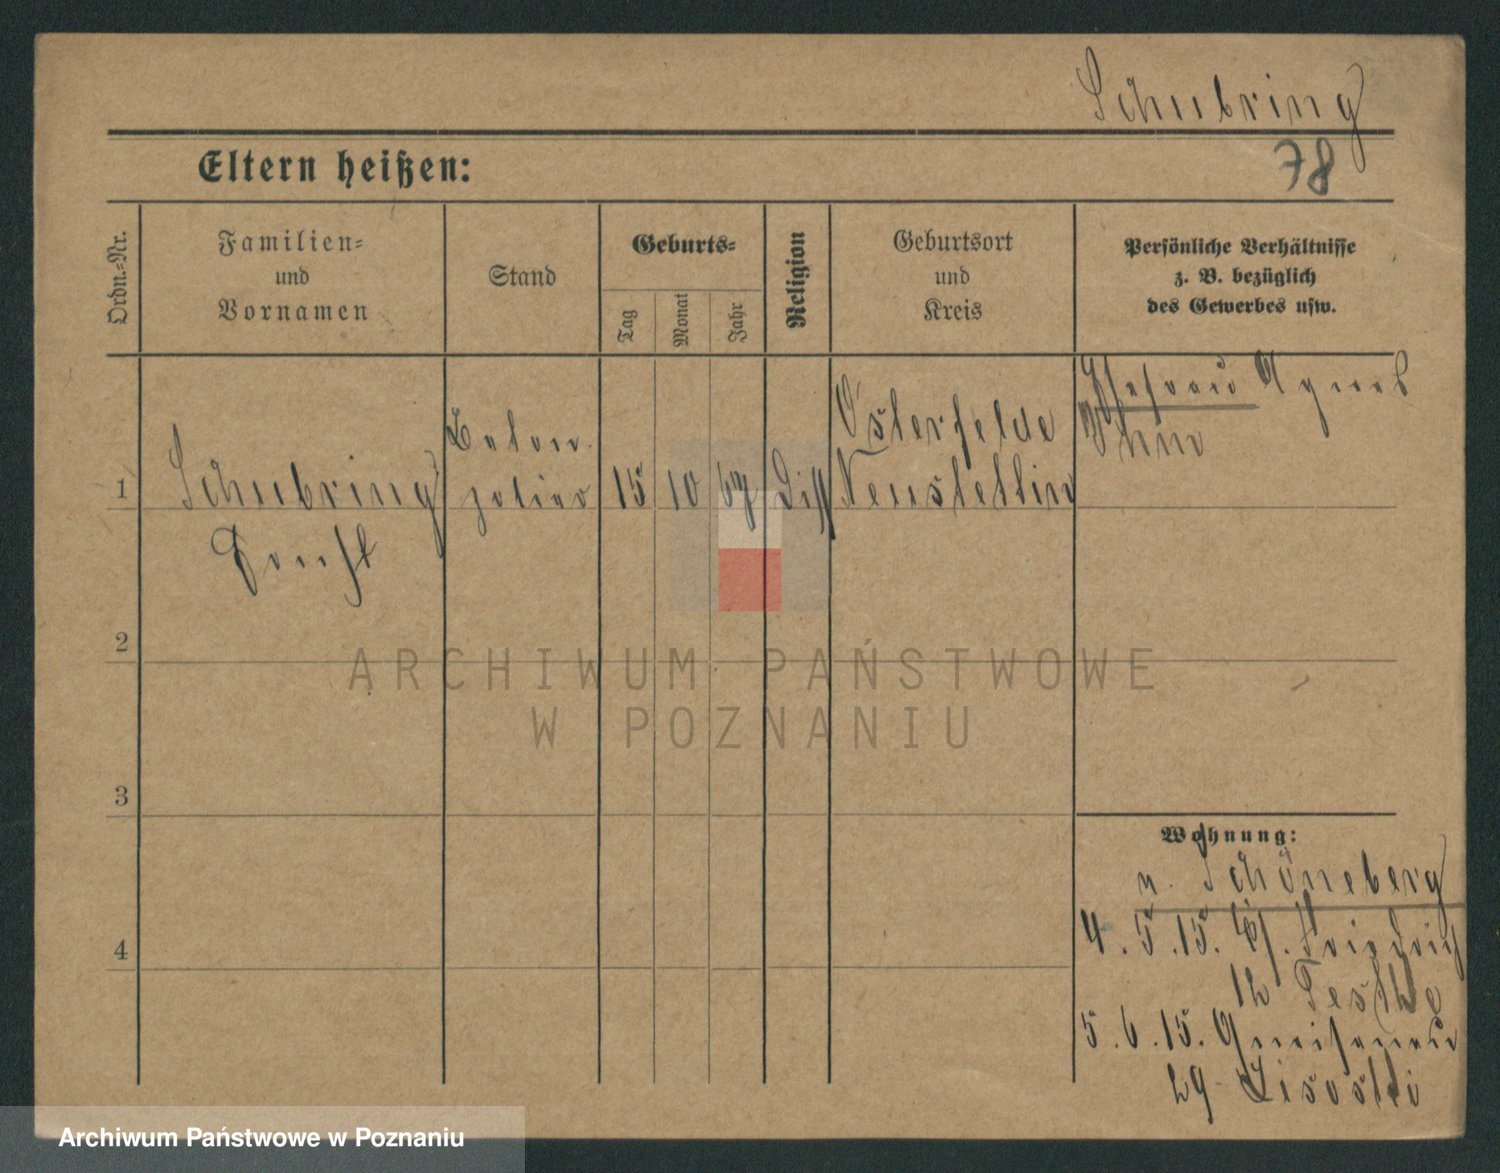 Schubring
78
Eltern heißen:
Ordn.-Nr.
Familien-
und
Vornamen
Stand
Geburts-
Tag
Monat
Jahr
Religion
Geburtsort
und
Kreis
Persönliche Verhältnisse
z. B. bezüglich
des Gewerbes usw.
1
Schubring
Ernst
15
10
67
Diss
Osterfelde
Neustettin
Ehefrau Agnes
2
3
4
Wohnung:
n. Schöneberg
4.5.15.
12
5.6.15. Gneisenau
29
ARCHIWUM PAŃSTWOWE
W POZNANIU
Archiwum Państwowe w Poznaniu